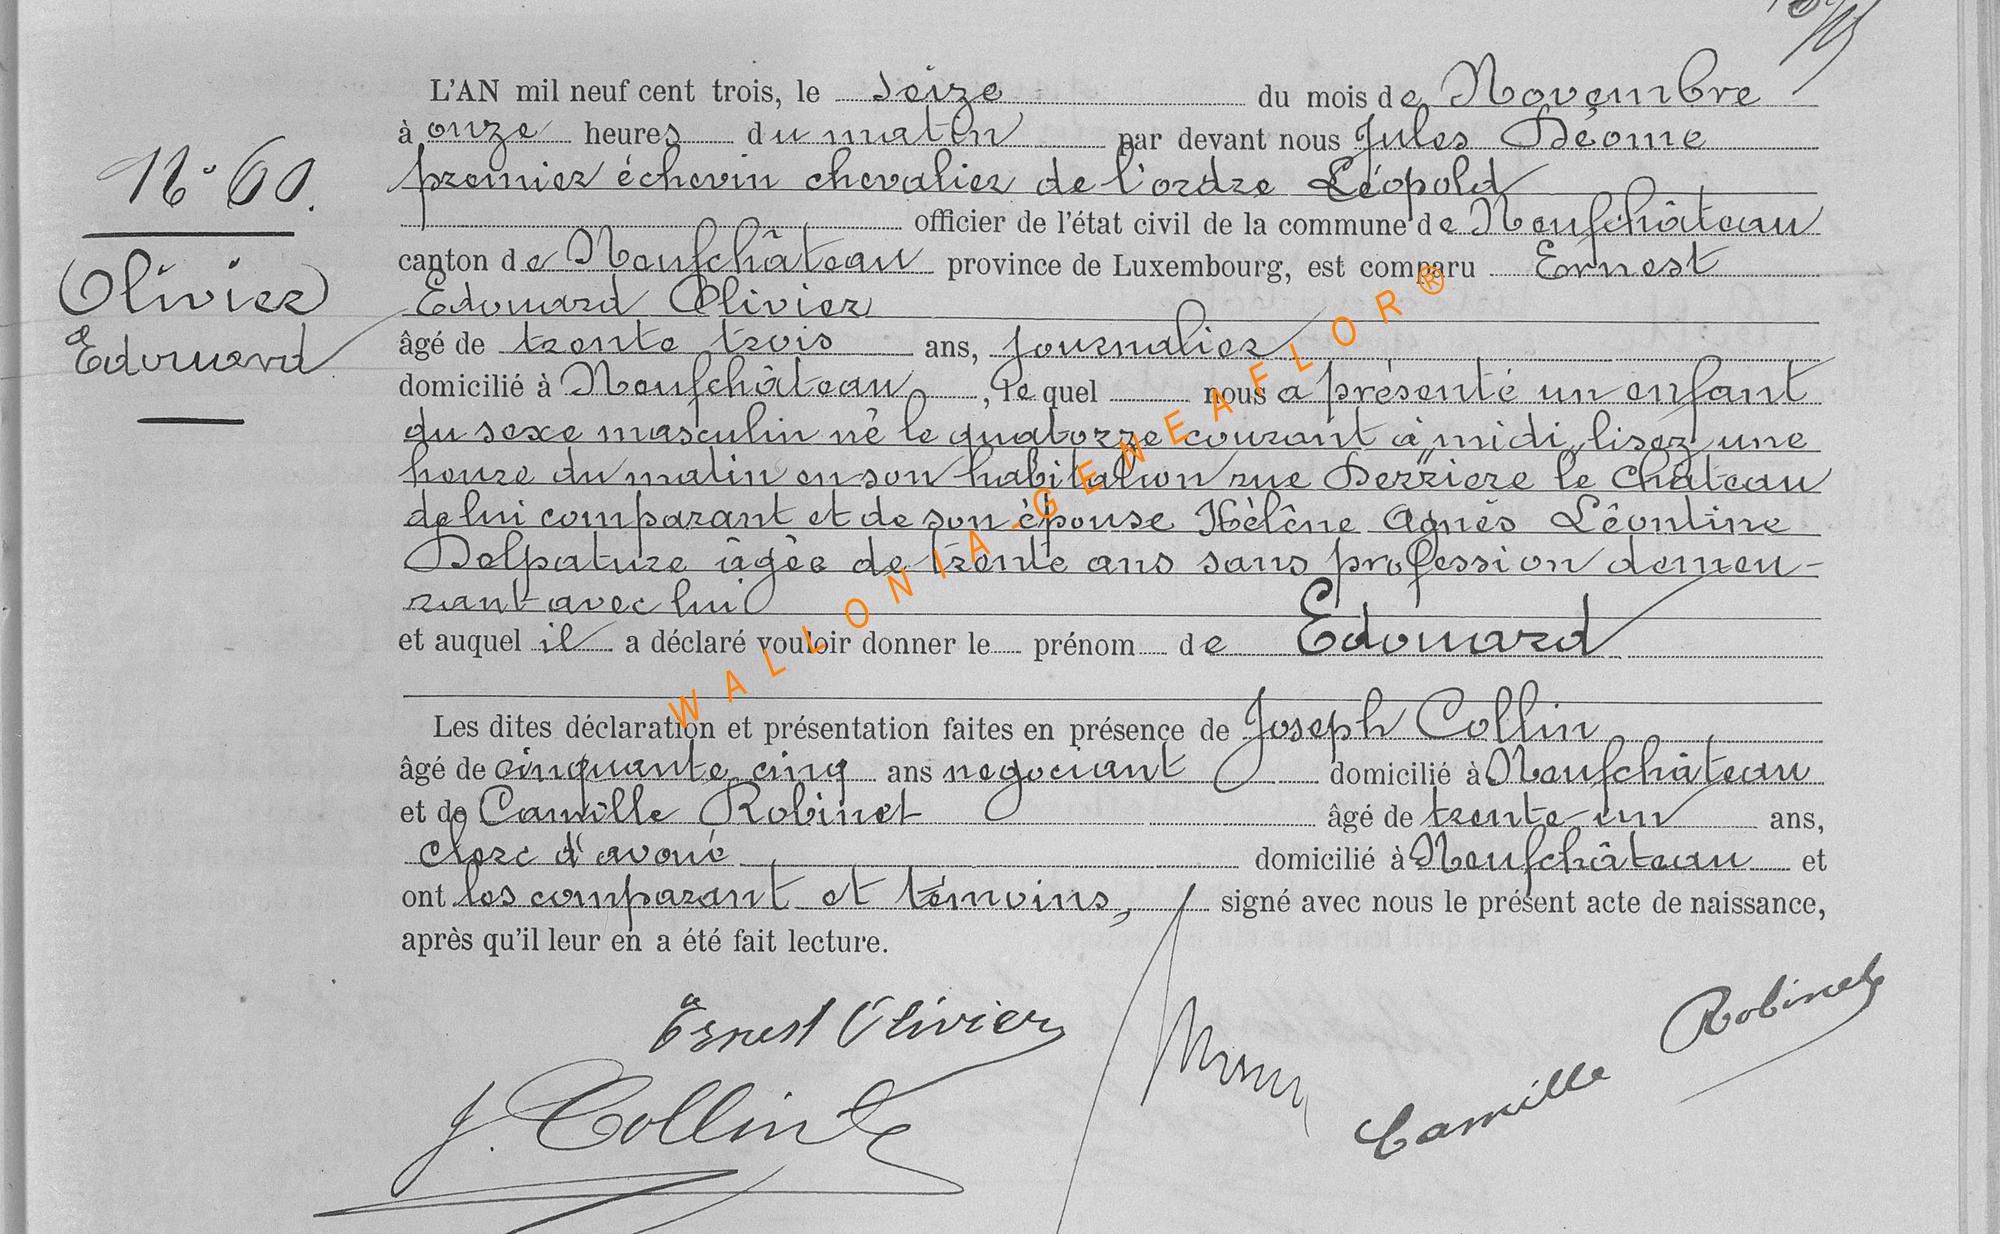 N° 60.
Olivier
Edouard
L'AN mil neuf cent trois, le seize du mois de Novembre
à onze heures du matin par devant nous Jules Déome
premier échevin chevalier de l'ordre Léopold
officier de l'état civil de la commune de Neufchâteau
canton de Neufchâteau province de Luxembourg, est comparu Ernest
Edouard Olivier
âgé de trente trois ans, journalier
domicilié à Neufchâteau, le quel nous a présenté un enfant
du sexe masculin né le quatorze courant à midi, lisez une
heure du matin en son habitation rue Derriere le Château
de lui comparant et de son épouse Hélène Agnès Léontine
Delpature âgée de trente ans sans profession demeu-
rant avec lui
et auquel il a déclaré vouloir donner le prénom de Edouard
Les dites déclaration et présentation faites en présence de Joseph Collin
âgé de cinquante cinq ans negociant domicilié à Neufchâteau
et de Camille Robinet âgé de trente-un ans,
clerc d'avoué domicilié à Neufchâteau et
ont les comparant et témoins, signé avec nous le présent acte de naissance,
après qu'il leur en a été fait lecture.
Ernest Olivier
J. Collin
Camille Robinet
WALLONIA-GENEAFLOR®